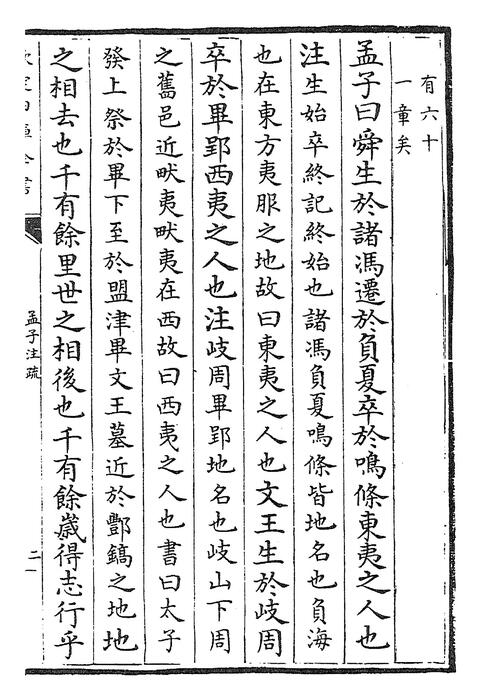 有六十
一章矣
孟子曰舜生於諸馮遷於負夏卒於鳴條東夷之人也
注生始卒終記終始也諸馮負夏鳴條皆地名也負海
也在東方夷服之地故曰東夷之人也文王生於岐周
卒於畢郢西夷之人也注岐周畢郢地名也岐山下周
之舊邑近畎夷畎夷在西故曰西夷之人也書曰太子
發上祭於畢下至於盟津畢文王墓近於酆鎬之地地
之相去也千有餘里世之相後也千有餘歲得志行乎
孟子注疏
二